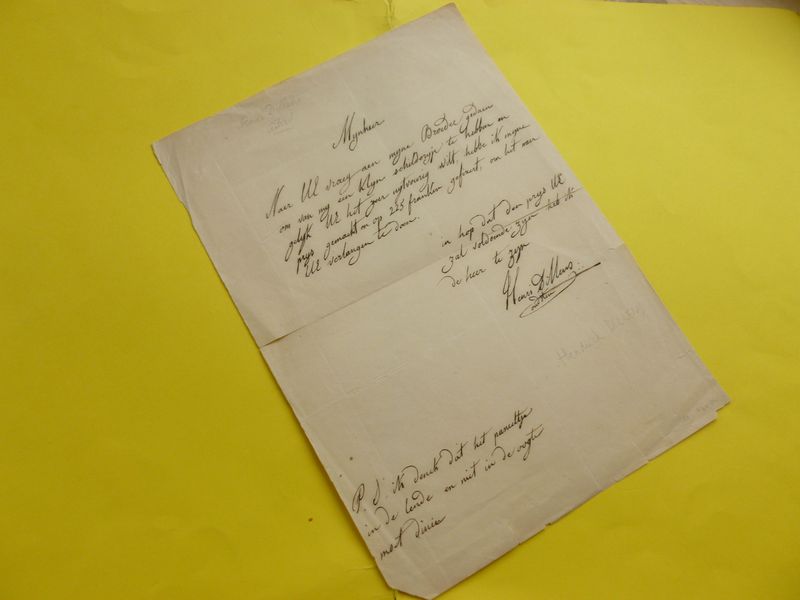 Henri Dillens
Mynheer
Naer UE vraeg aen myne Broeder gedaen
om van my een klyn schilderyje te hebben en
gelyk UE het zeer uytvourig wilt, hebbe ik myne
prys gemaekt on op 225 franken gefixeert, om het naer
UE verlangen te doen.
in hop dat den prys UE
zal voldoende zyn heb ik
de heer te zyn
Henri Dillens
P. S. ik denck dat het paneeltje
in de lende en niet in de oogte
moet